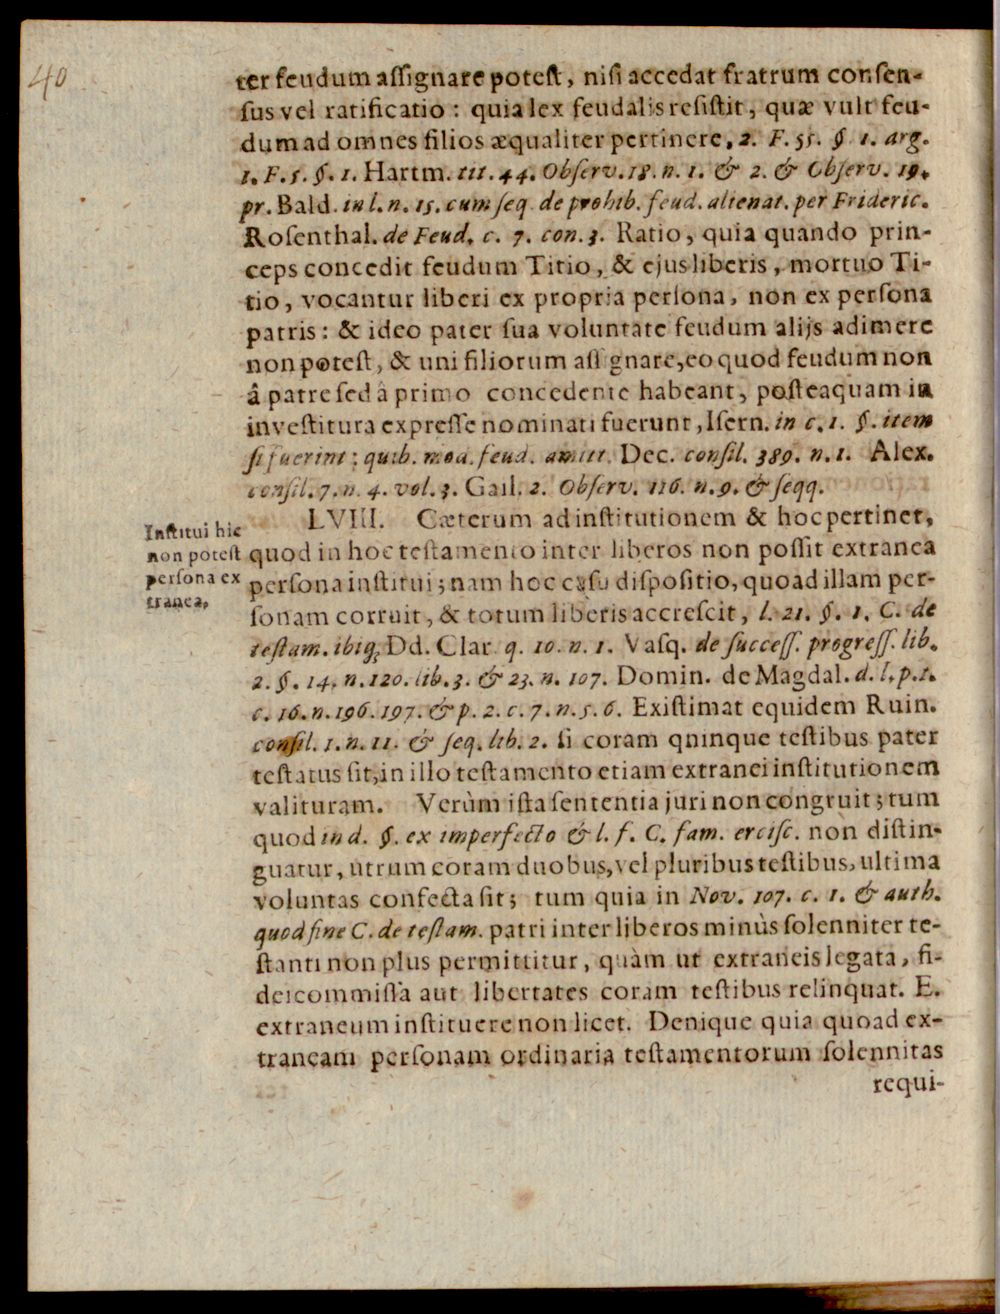 40
ter feudum aſſignare poteſt, niſi accedat fratrum conſen-
ſus vel ratificatio: quia lex feudalis reſiſtit, quæ vult feu-
dum ad omnes filios æqualiter pertinere, 2. F. 55. §. 1. arg.
1. F. 5. §. 1. Hartm. tit. 44. Obſerv. 18. n. 1. & 2. & Obſerv. 19.
pr. Bald. in l. n. 15. cum ſeq. de prohib. feud. alienat. per Frideric.
Roſenthal. de Feud. c. 7. con. 3. Ratio, quia quando prin-
ceps concedit feudum Titio, & ejus liberis, mortuo Ti-
tio, vocantur liberi ex propria perſona, non ex perſona
patris: & ideo pater ſua voluntate feudum alijs adimere
non poteſt, & uni filiorum aſſignare, eo quod feudum non
â patre ſed â primo concedente habeant, poſteaquam in
inveſtitura expreſſe nominati fuerunt, Iſern. in c. 1. §. item
ſi fuerint: quib. mod. feud. amitt. Dec. conſil. 389. n. 1. Alex.
conſil. 7. n. 4. vol. 3. Gail. 2. Obſerv. 116. n. 9. & ſeqq.
LVIII. Cæterum ad inſtitutionem & hoc pertinet,
Inſtitui hic
non poteſt
perſona ex
tranea,
quod in hoc teſtamento inter liberos non poſſit extranea
perſona inſtitui; nam hoc caſu diſpoſitio, quoad illam per-
ſonam corruit, & totum liberis accreſcit, l. 21. §. 1. C. de
teſtam. ibiq; Dd. Clar. q. 10. n. 1. Vaſq. de ſucceſſ. progreſſ. lib.
2. §. 14. n. 120. lib. 3. & 23. n. 107. Domin. de Magdal. d. l. p. 1.
c. 16. n. 196. 197. & p. 2. c. 7. n. 5. 6. Exiſtimat equidem Ruin.
conſil. 1. n. 11. & ſeq. lib. 2. ſi coram qninque teſtibus pater
teſtatus ſit, in illo teſtamento etiam extranei inſtitutionem
valituram. Verùm iſta ſententia juri non congruit; tum
quod in d. §. ex imperfecto & l. f. C. fam. erciſc. non diſtin-
guatur, utrum coram duobus, vel pluribus teſtibus, ultima
voluntas confecta ſit; tum quia in Nov. 107. c. 1. & auth.
quod ſine C. de teſtam. patri inter liberos minùs ſolenniter te-
ſtanti non plus permittitur, quàm ut extraneis legata, fi-
deicommiſſa aut libertates coram teſtibus relinquat. E.
extraneum inſtituere non licet. Denique quia quoad ex-
traneam perſonam ordinaria teſtamentorum ſolennitas
requi-